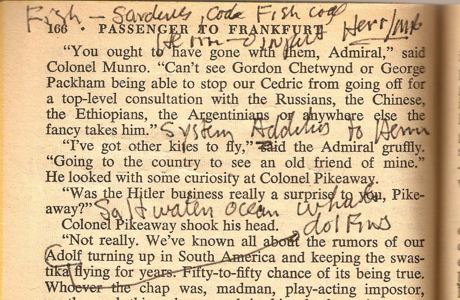 Fish - Sardines, Code Fish coal
166 • PASSENGER TO FRANKFURT
"You ought to have gone with them, Admiral," said
Colonel Munro. "Can't see Gordon Chetwynd or George
Packham being able to stop our Cedric from going off for
a top-level consultation with the Russians, the Chinese,
the Ethiopians, the Argentinians or anywhere else the
fancy takes him." System Addities to Herm
"I've got other kites to fly," said the Admiral gruffly.
"Going to the country to see an old friend of mine."
He looked with some curiosity at Colonel Pikeaway.
"Was the Hitler business really a surprise to you, Pike-
away?" Saltwater ocean whales
Colonel Pikeaway shook his head. dolfins
"Not really. We've known all about the rumors of our
Adolf turning up in South America and keeping the swas-
tika flying for years. Fifty-to-fifty chance of its being true.
Whoever the chap was, madman, play-acting impostor,